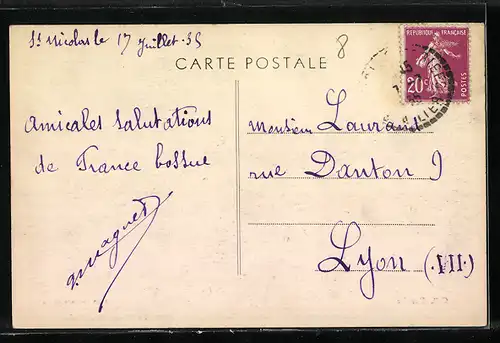 St Nicolas le 17 juillet 35
8
CARTE POSTALE
REPUBLIQUE FRANÇAISE
20c
POSTES
Amicales salutations
de France bossue
Monsieur Laurant
rue Danton 9
Lyon (VII)